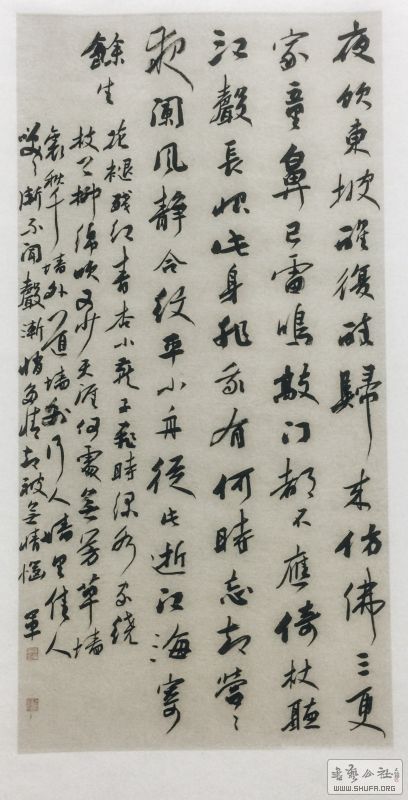 夜飲東坡醒復醉歸來仿佛三更
家童鼻已雷鳴敲门都不應倚杖聽
江聲長恨此身非我有何時忘却營〻
夜闌風静合紋平小舟從此逝江海寄
餘生
花褪殘红青杏小燕子飛時绿水家繞
枝上柳绵吹又少天涯何處無芳草墻
裏秋千墻外道墻外行人墻里佳人
笑〻渐不聞聲漸悄多情却被無情惱 單
書藝公社
WWW.SHUFA.ORG